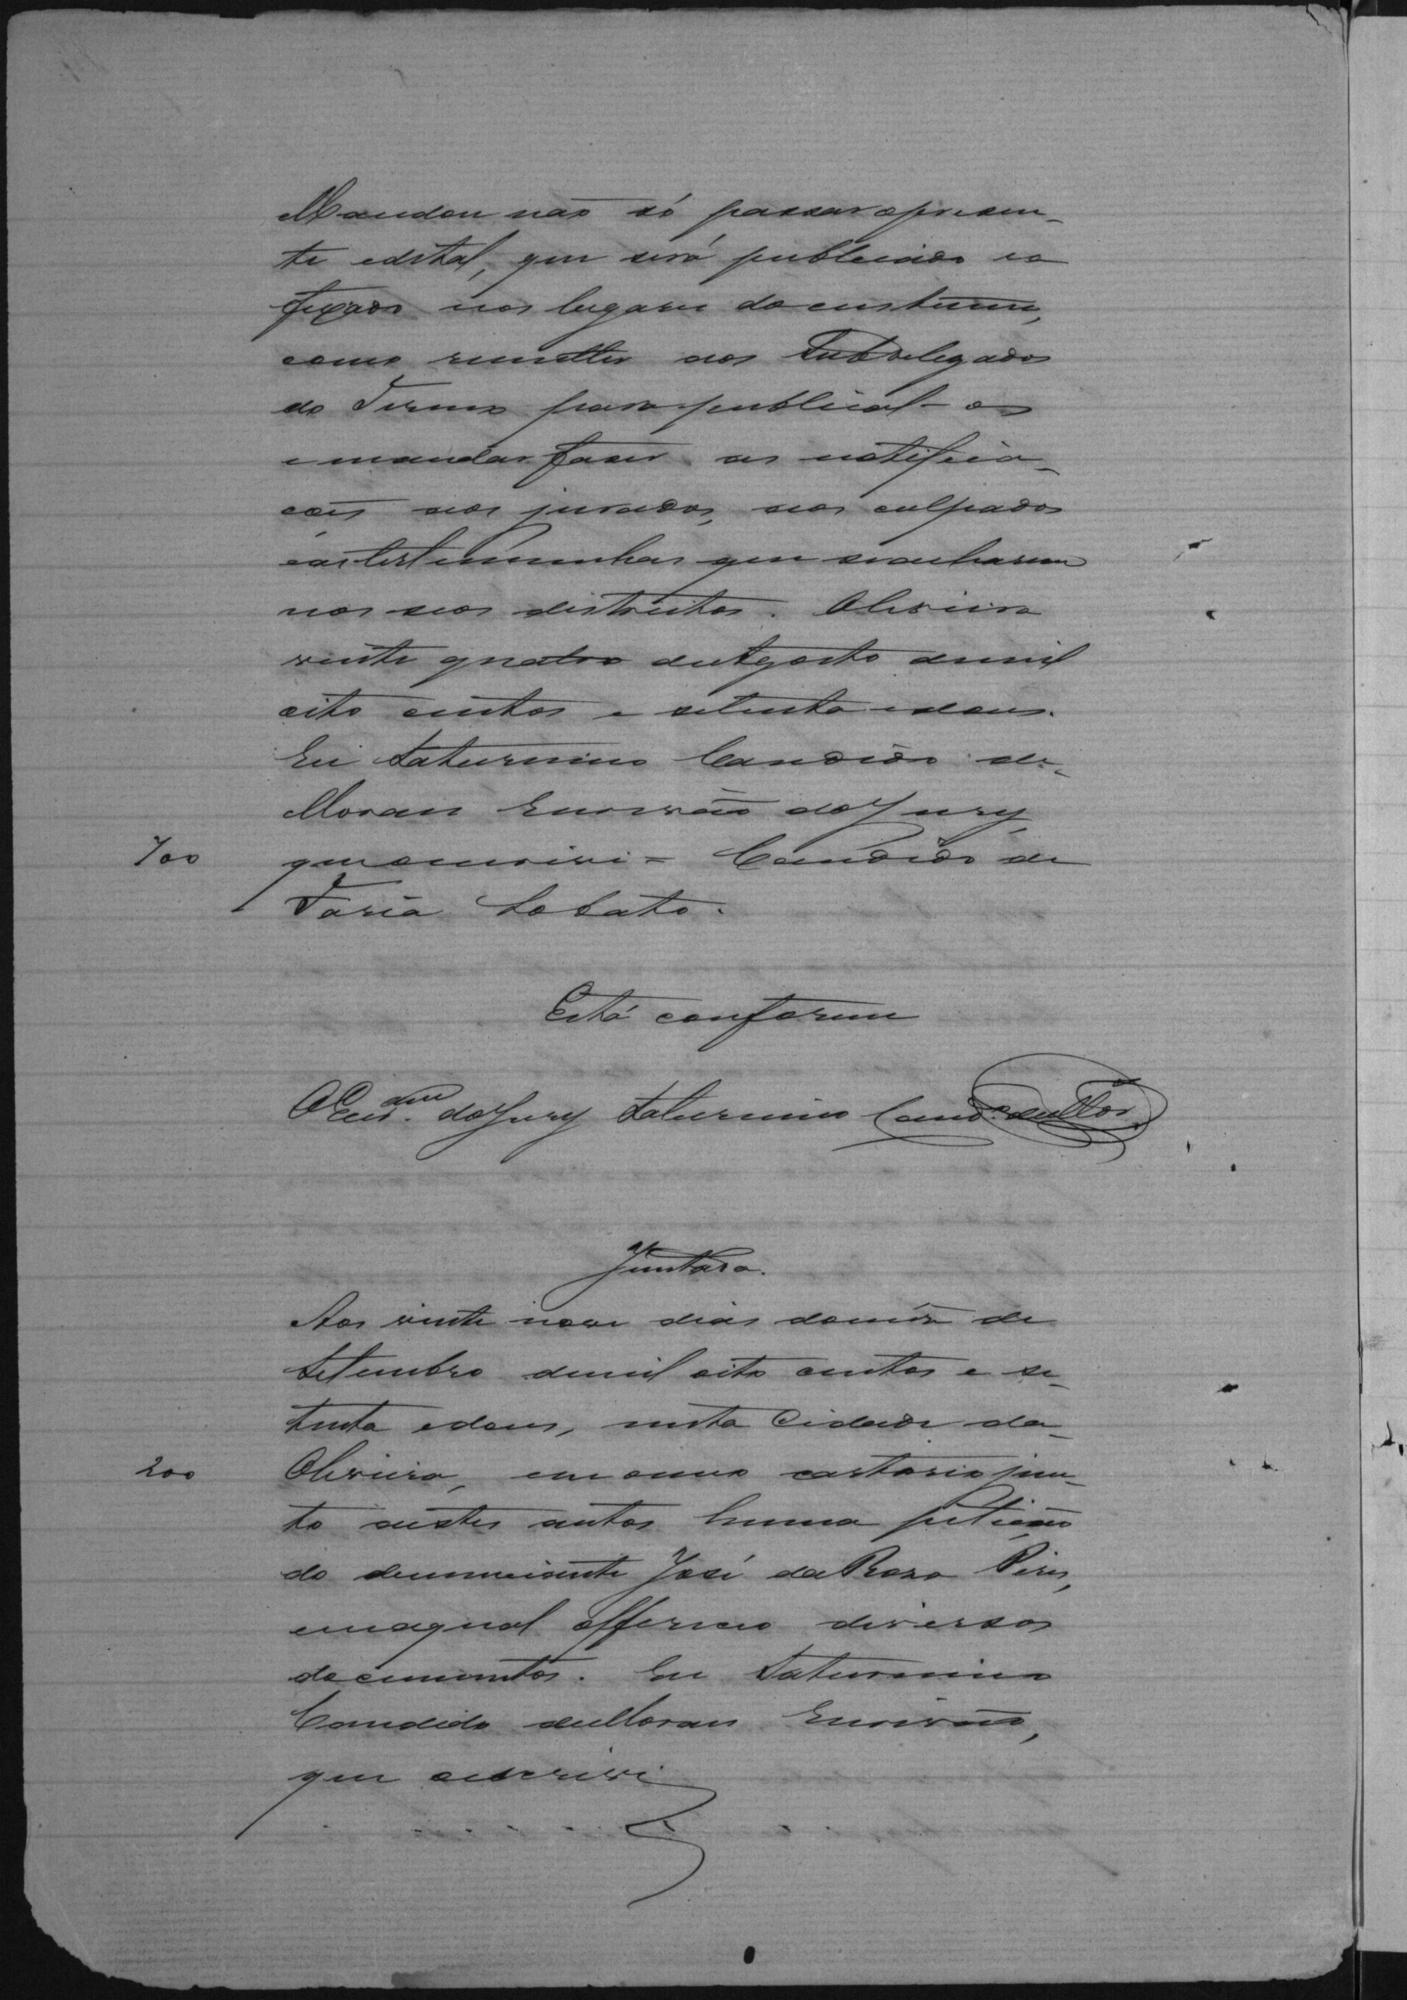 Mandou não só passar o presen-
te edital, que será publicado e a
fixado nos lugares do custume,
como remetter aos Subdelegados
do Termo para publical-os
e mandar faser as notifica-
cões aos jurados, aos culpados
e ás testemunhas que se acharem
nos seos districtos. Oliveira
vinte quatro de Agosto de mil
oito centos e setenta e dous.
Eu Saturnino Candido de
Moraes Escrivão do Jury,
700 que o escrivi = Candido de
Faria Lobato.
Está conforme
O Escr.am do Jury Saturnino Cand.o de Mor.
Juntada.
Aos vinte nove dias do mês de
Setembro de mil oito centos e se-
tenta e dous, nesta Cidade da
200 Oliveira, em o meu cartorio jun-
to a estes autos huma petição
do denunciante José da Rosa Pires,
em a qual offereceo diversos
documentos. Eu Saturnino
Candido de Moraes Escrivão,
que o escrivi